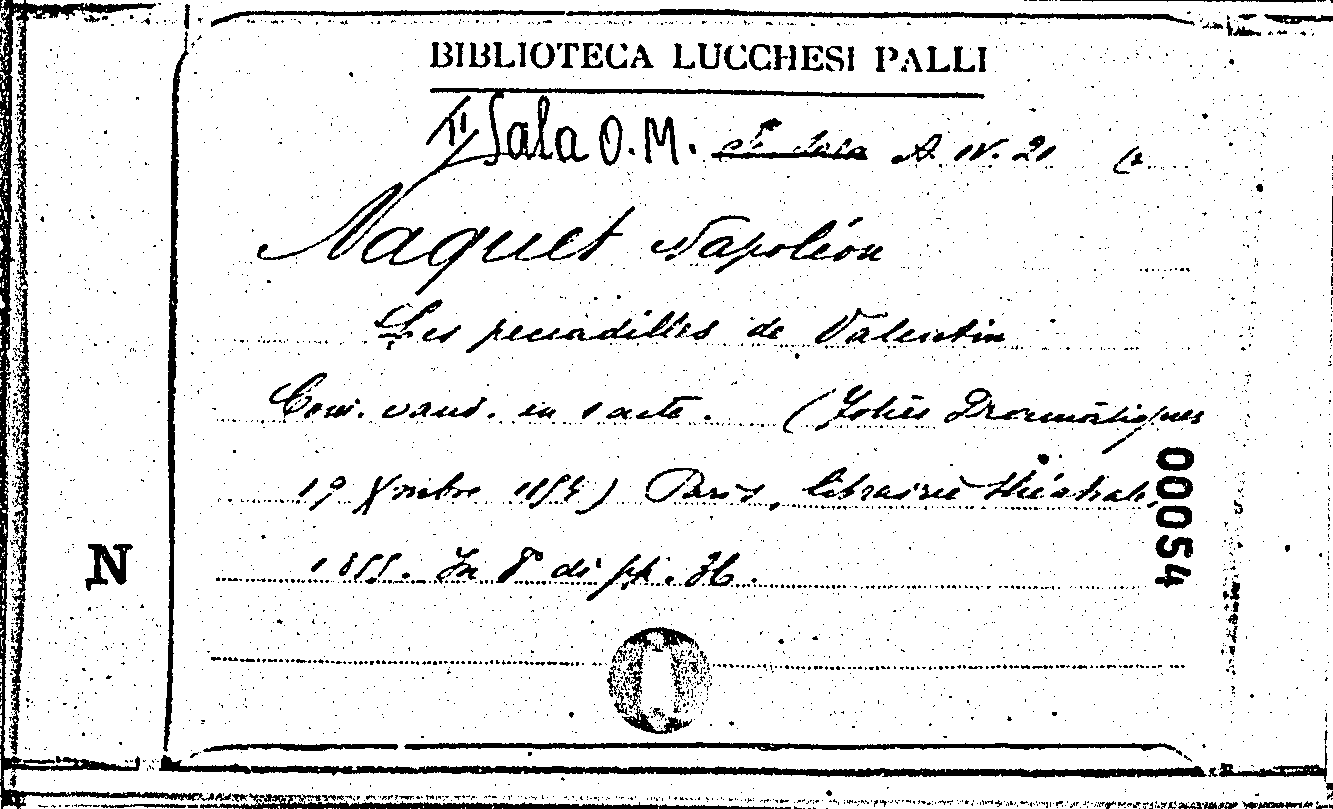 BIBLIOTECA LUCCHESI PALLI
II Sala O.M. Sala A. IV. 21 (2
Naquet Napoléon
Les peccadilles de Valentin
Com. vaud. en 1 acte. (Folies Dramatiques
19 Xombre 1854) Paris, librairie théatrale,
1855. In 8° di pp. 36.
N
00054